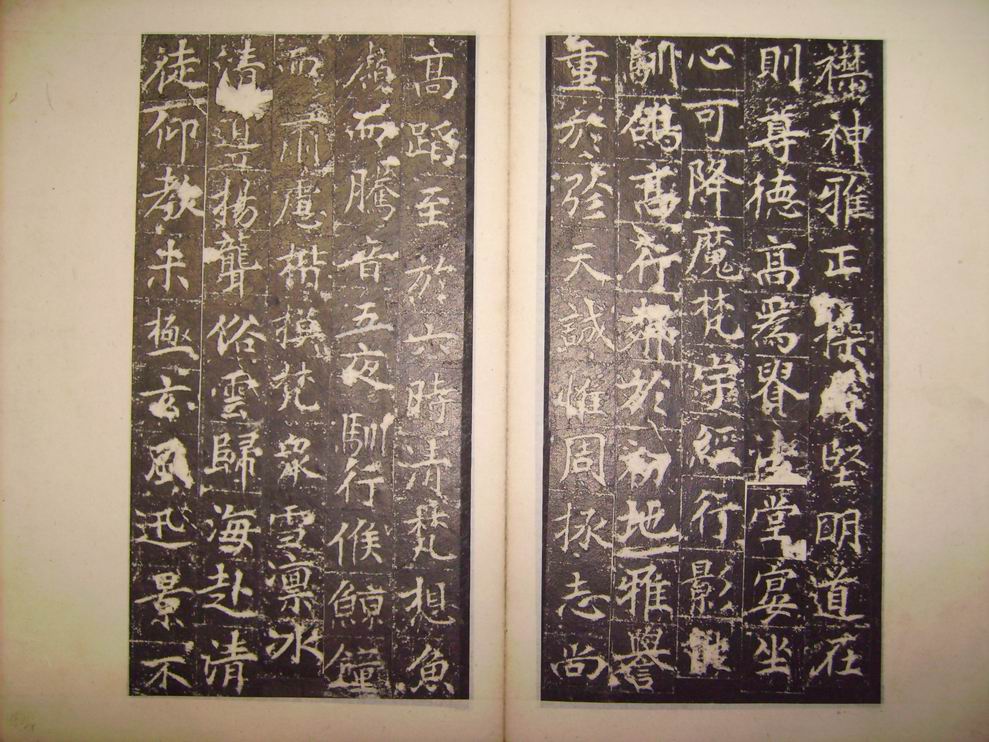 襟神雅正操履堅明道在
則尊德高為譽法堂宴坐
心可降魔梵宇經行影
馴鴿高行於初地雅譽
重於弥天誠惟周拯志尚
高蹈至於六時清梵想魚
嶺而騰音五夜馴行候鯨鐘
而肅慮楷模梵眾雪凛水
清揚聾俗雲歸海赴清
徒仰教未極玄風迅景不